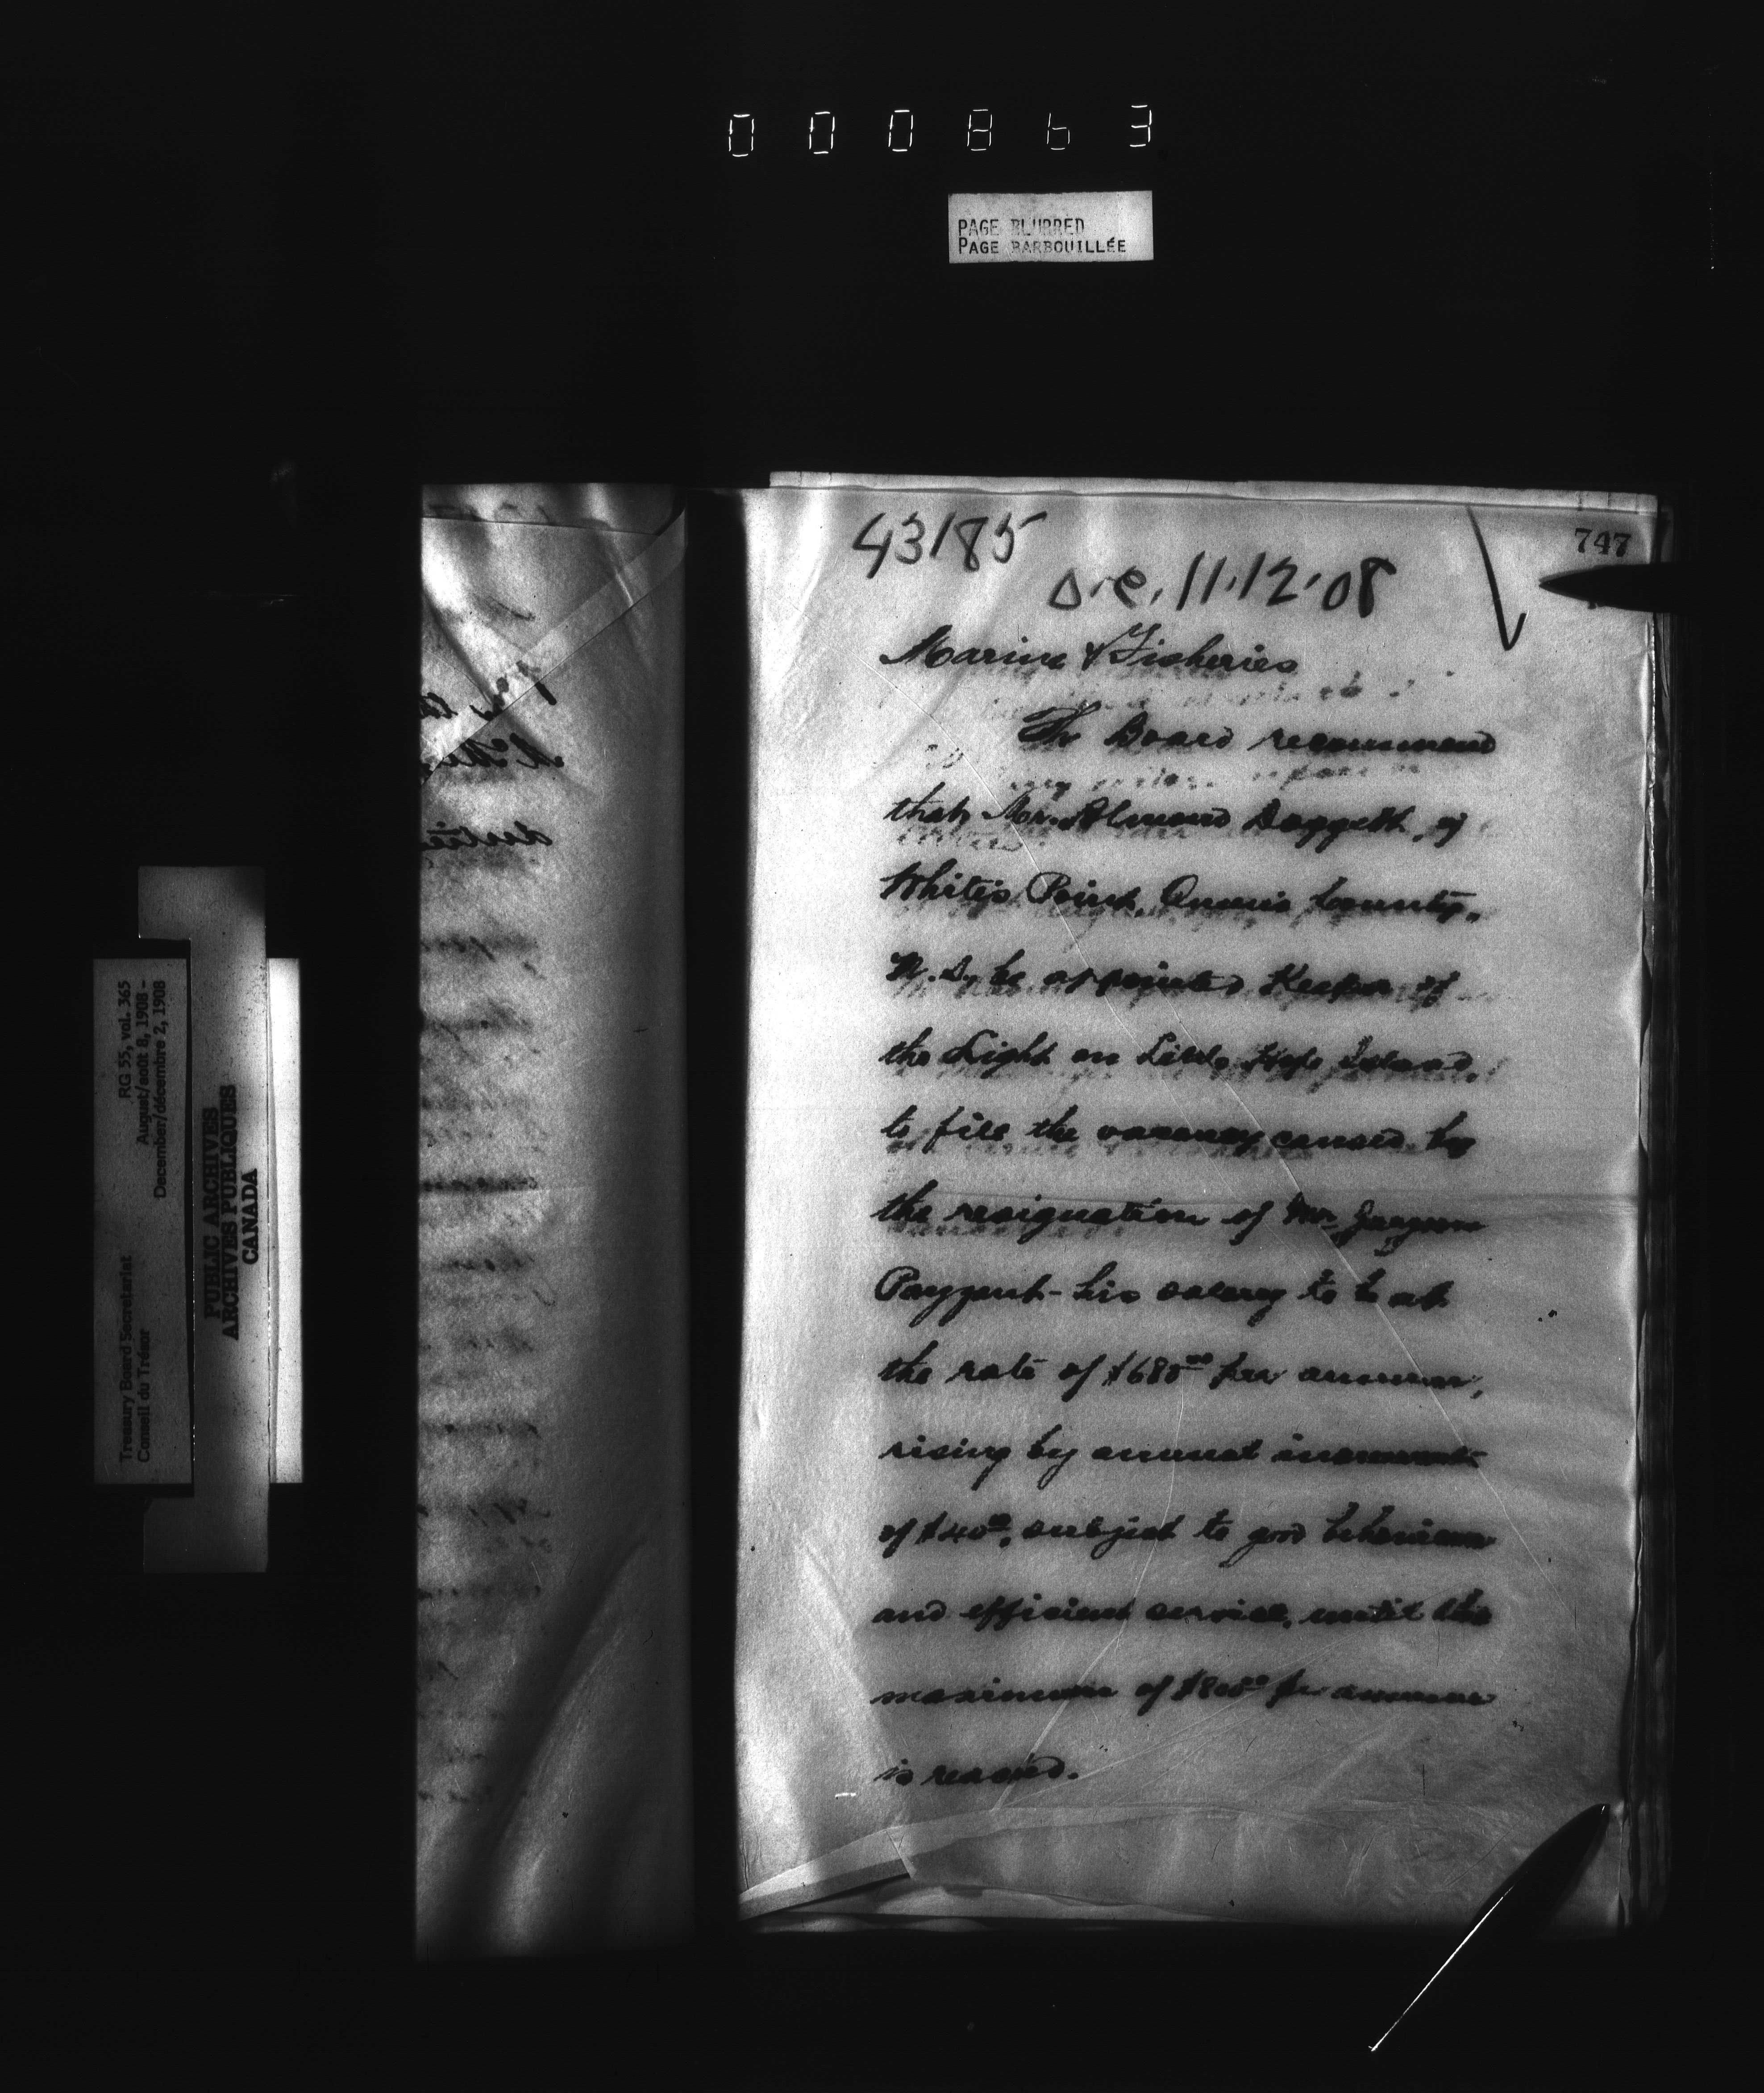 000863
PAGE BLURRED
PAGE BARBOUILLÉE
747
43185
O.C. 11.12.08
Marine & Fisheries
The Board recommend
that Mr. Almond Daggett, of
White's Point, Queen's County,
N.S., be appointed Keeper of
the Light on Little Hope Island,
to fill the vacancy caused by
the resignation of Mr
Payzant - his salary to be at
the rate of $680⁰⁰ per annum,
rising by annual increments
of $40⁰⁰, subject to good behaviour
and efficient service, until the
maximum of $800⁰⁰ per annum
is reached.
Treasury Board Secretariat RG 55, vol. 365
Conseil du Trésor August/août 8, 1908 -
December/décembre 2, 1908
PUBLIC ARCHIVES
ARCHIVES PUBLIQUES
CANADA